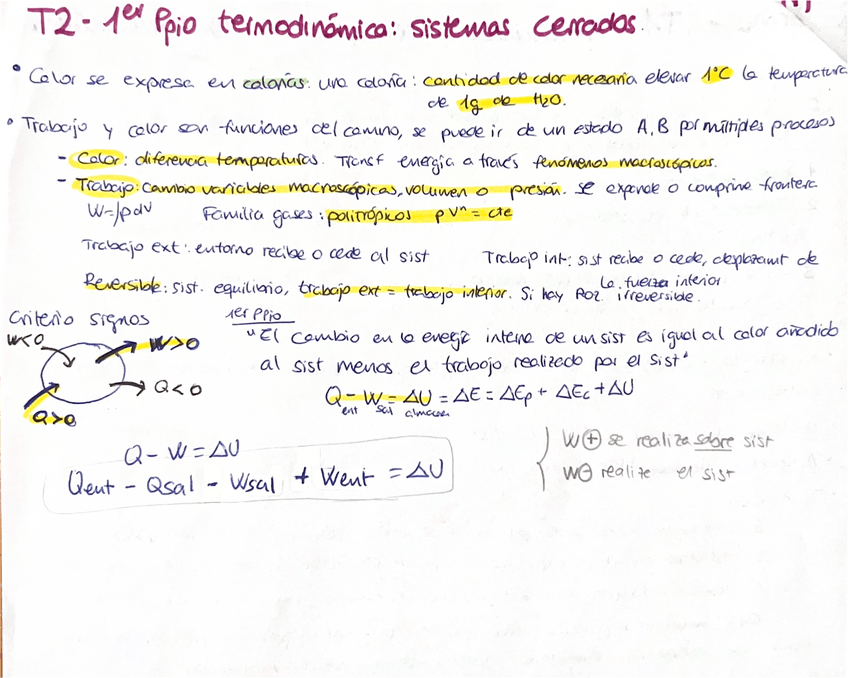 T2 - 1er Ppio termodinámica: sistemas cerrados.
• Calor se expresa en calorías: una caloría: cantidad de calor necesaria elevar 1°C la temperatura
de 1g de H2O.
• Trabajo y calor son funciones del camino, se puede ir de un estado A, B por múltiples procesos
- Calor: diferencia temperaturas. Transf energía a través fenómenos macroscópicos.
- Trabajo: cambio variables macroscópicas, volumen o presión. se expande o comprime frontera
W=∫pdV Familia gases: politrópicos pVⁿ = cte
Trabajo ext: entorno recibe o cede al sist Trabajo int: sist recibe o cede, desplazamt de
la fuerza interior
Reversible: sist. equilibrio, trabajo ext = trabajo interior. Si hay Roz. irreversible.
Criterio signos
W<0
W>0
Q<0
Q>0
1er Ppio
"El cambio en la energía interna de un sist es igual al calor añadido
al sist menos el trabajo realizado por el sist"
Q - W = ΔU = ΔE = ΔEp + ΔEc + ΔU
ent sal almacen
Q - W = ΔU
Qent - Qsal - Wsal + Went = ΔU
W⊕ se realiza sobre sist
W⊖ realize el sist